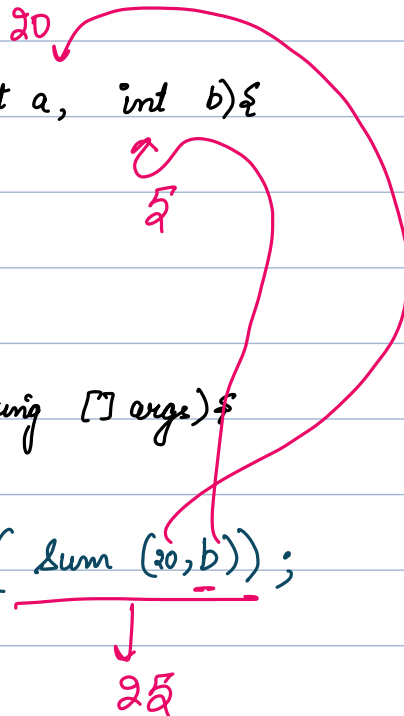 20
t a, int b){
5
ing [] args){
( Sum (20,b));
25